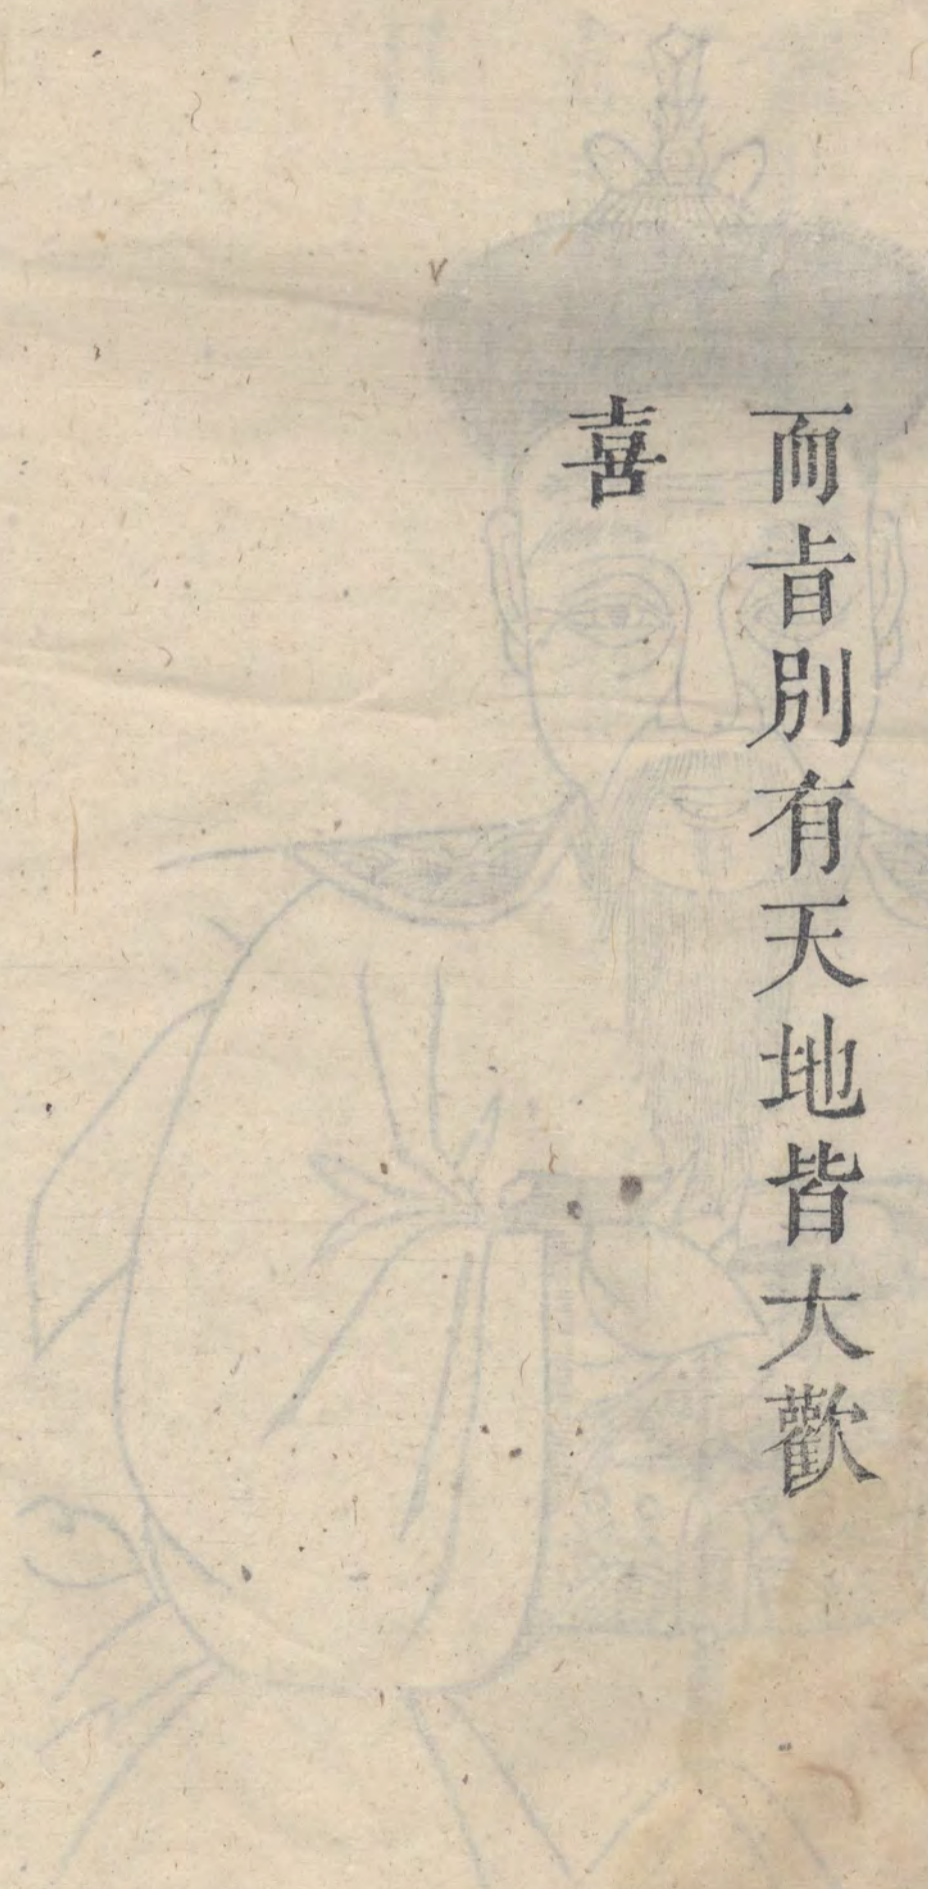 而㫖別有天地皆大歡
喜